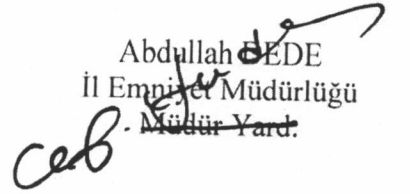 Abdullah DEDE
İl Emniyet Müdürlüğü
Müdür Yard.